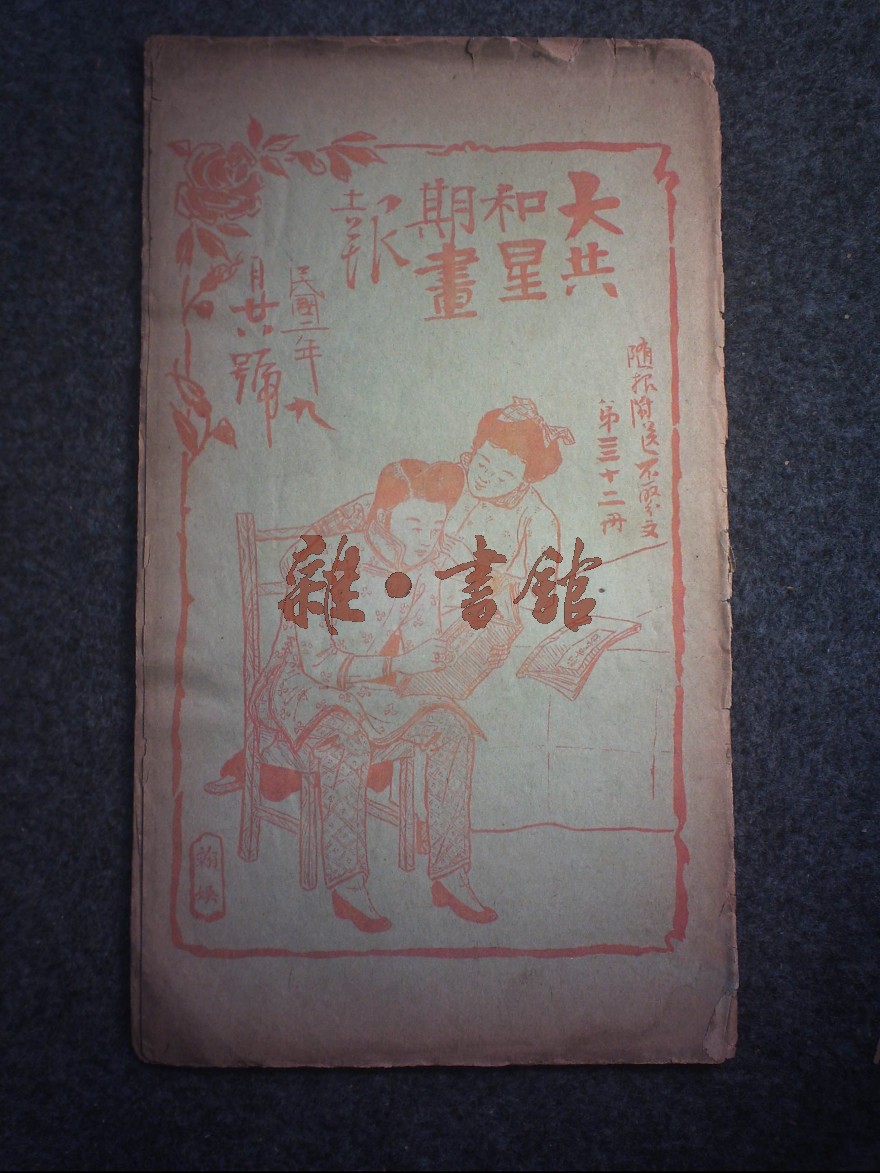 大共
和星
期畫
報
民國二年九
月廿八號
隨報附送不取分文
第三十二册
雜·書館